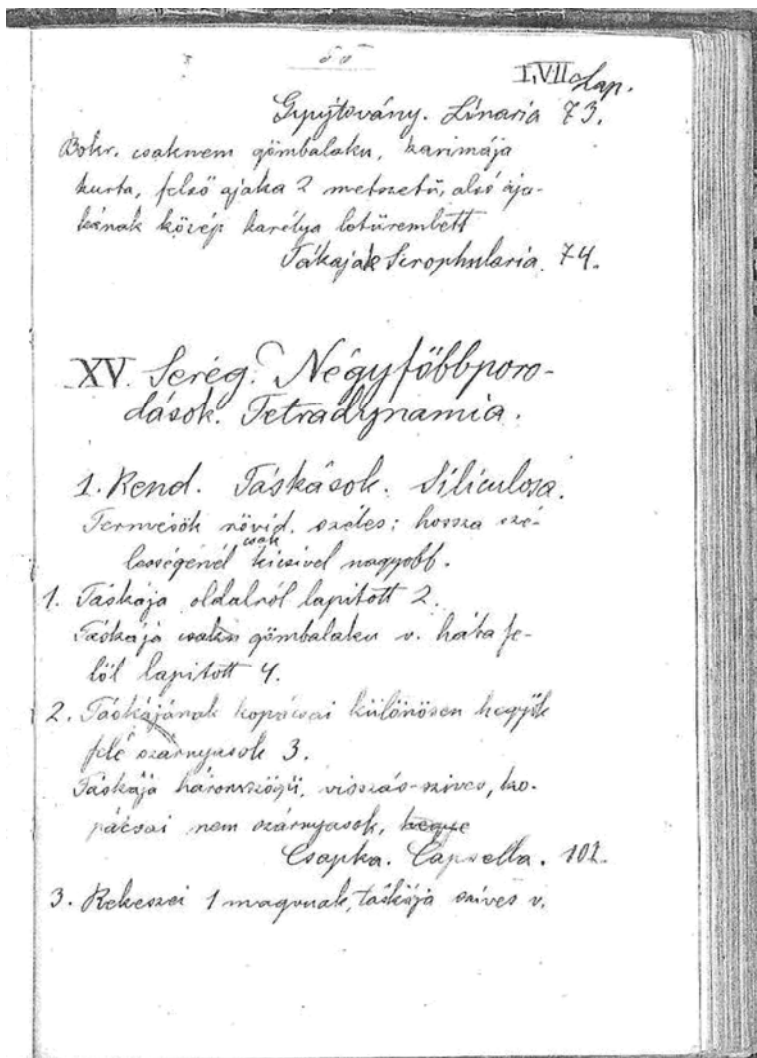 55
I, VII Lap.
Gyujtovány. Linaria 73.
Bokr. csaknem gömbalaku, karimája
kurta, felső ajaka 2 metszetű, alsó aja-
kának közép karélya letüremlett
Tákajak Scrophularia. 74.
XV. Sereg. Négyfőbbporo-
dások. Tetradynamia.
1. Rend. Táskások. Siliculosa.
Termésök rövid, széles: hossza szé-
lességénél csak kicsivel nagyobb.
1. Táskája oldalról lapított 2.
Táskája csakn gömbalaku v. háta fe-
löl lapított 4.
2. Táskájának kopácsai különösen hegyök
felé szárnyasok 3.
Táskája háromszögü, visszás-szives, ko-
pácsai nem szárnyasok, hegye
Csapka. Capsella. 102.
3. Rekeszei 1 magvuak, táskája szives v.